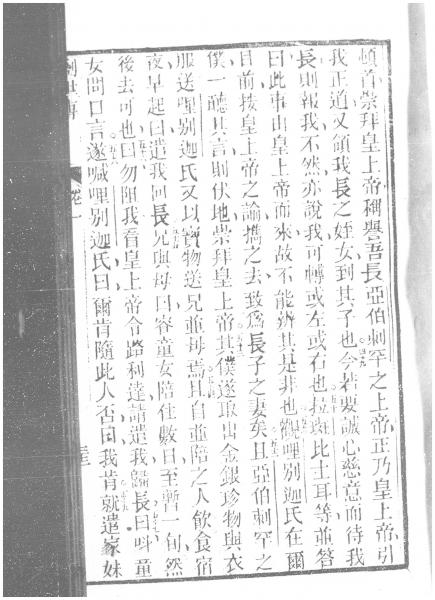 頓首崇拜皇上帝稱譽吾長亞伯剌罕之上帝正乃皇上帝引
我正道又領我長之姪女到其子也今若要誠心慈意而待我
長則報我不然亦說我可轉或左或右也拉班比士耳等並答
曰此事由皇上帝而來故不能辨其是非也觀哩別迦氏在爾
目前按皇上帝之諭攜之去致為長子之妻矣且亞伯剌罕之
僕一聽其言則伏地崇拜皇上帝其僕遂取出金銀珍物與衣
服送哩別迦氏又以寶物送兄並母焉其自並陪之人飲食宿
夜早起曰遣我回長兄與母曰容童女陪住數日至暫一旬然
後去可也曰勿阻我看皇上帝令路利達請遣我歸長曰呌童
女問口言遂喊哩別迦氏曰爾肯隨此人否曰我肯就遣家妹
創世傳 卷一